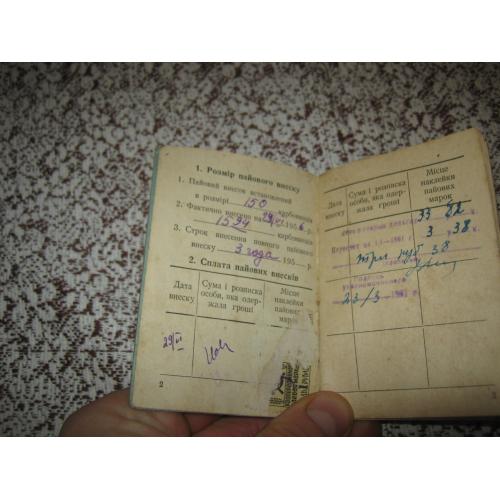 1. Розмір пайового внеску
1. Пайовий внесок встановлений
в розмірі 150 карбованців
2. Фактично внесено на 29/VI 1956 р.
1594 карбованців
3. Строк внесення повного пайового
внеску 3 года 195 р.
2. Сплата пайових внесків
Дата внеску
Сума і розписка особи, яка одержала гроші
Місце наклейки пайових марок
29/VI
2
Дата внеску
Сума і розписка особи, яка одержала гроші
Місце наклейки пайових марок
33 82
1961 3 р. 38 к.
три руб 38
23/3 1961 г.